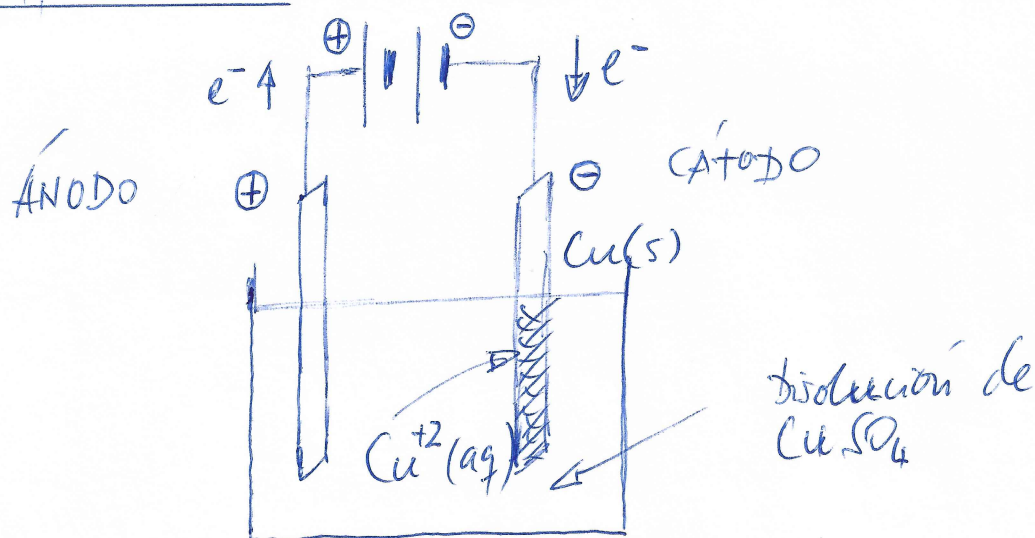 ⊕ ⊖
e⁻ ↑ ↓ e⁻
ÁNODO ⊕ ⊖ CÁTODO
Cu(s)
Cu⁺²(aq)
Disolución de
CuSO₄